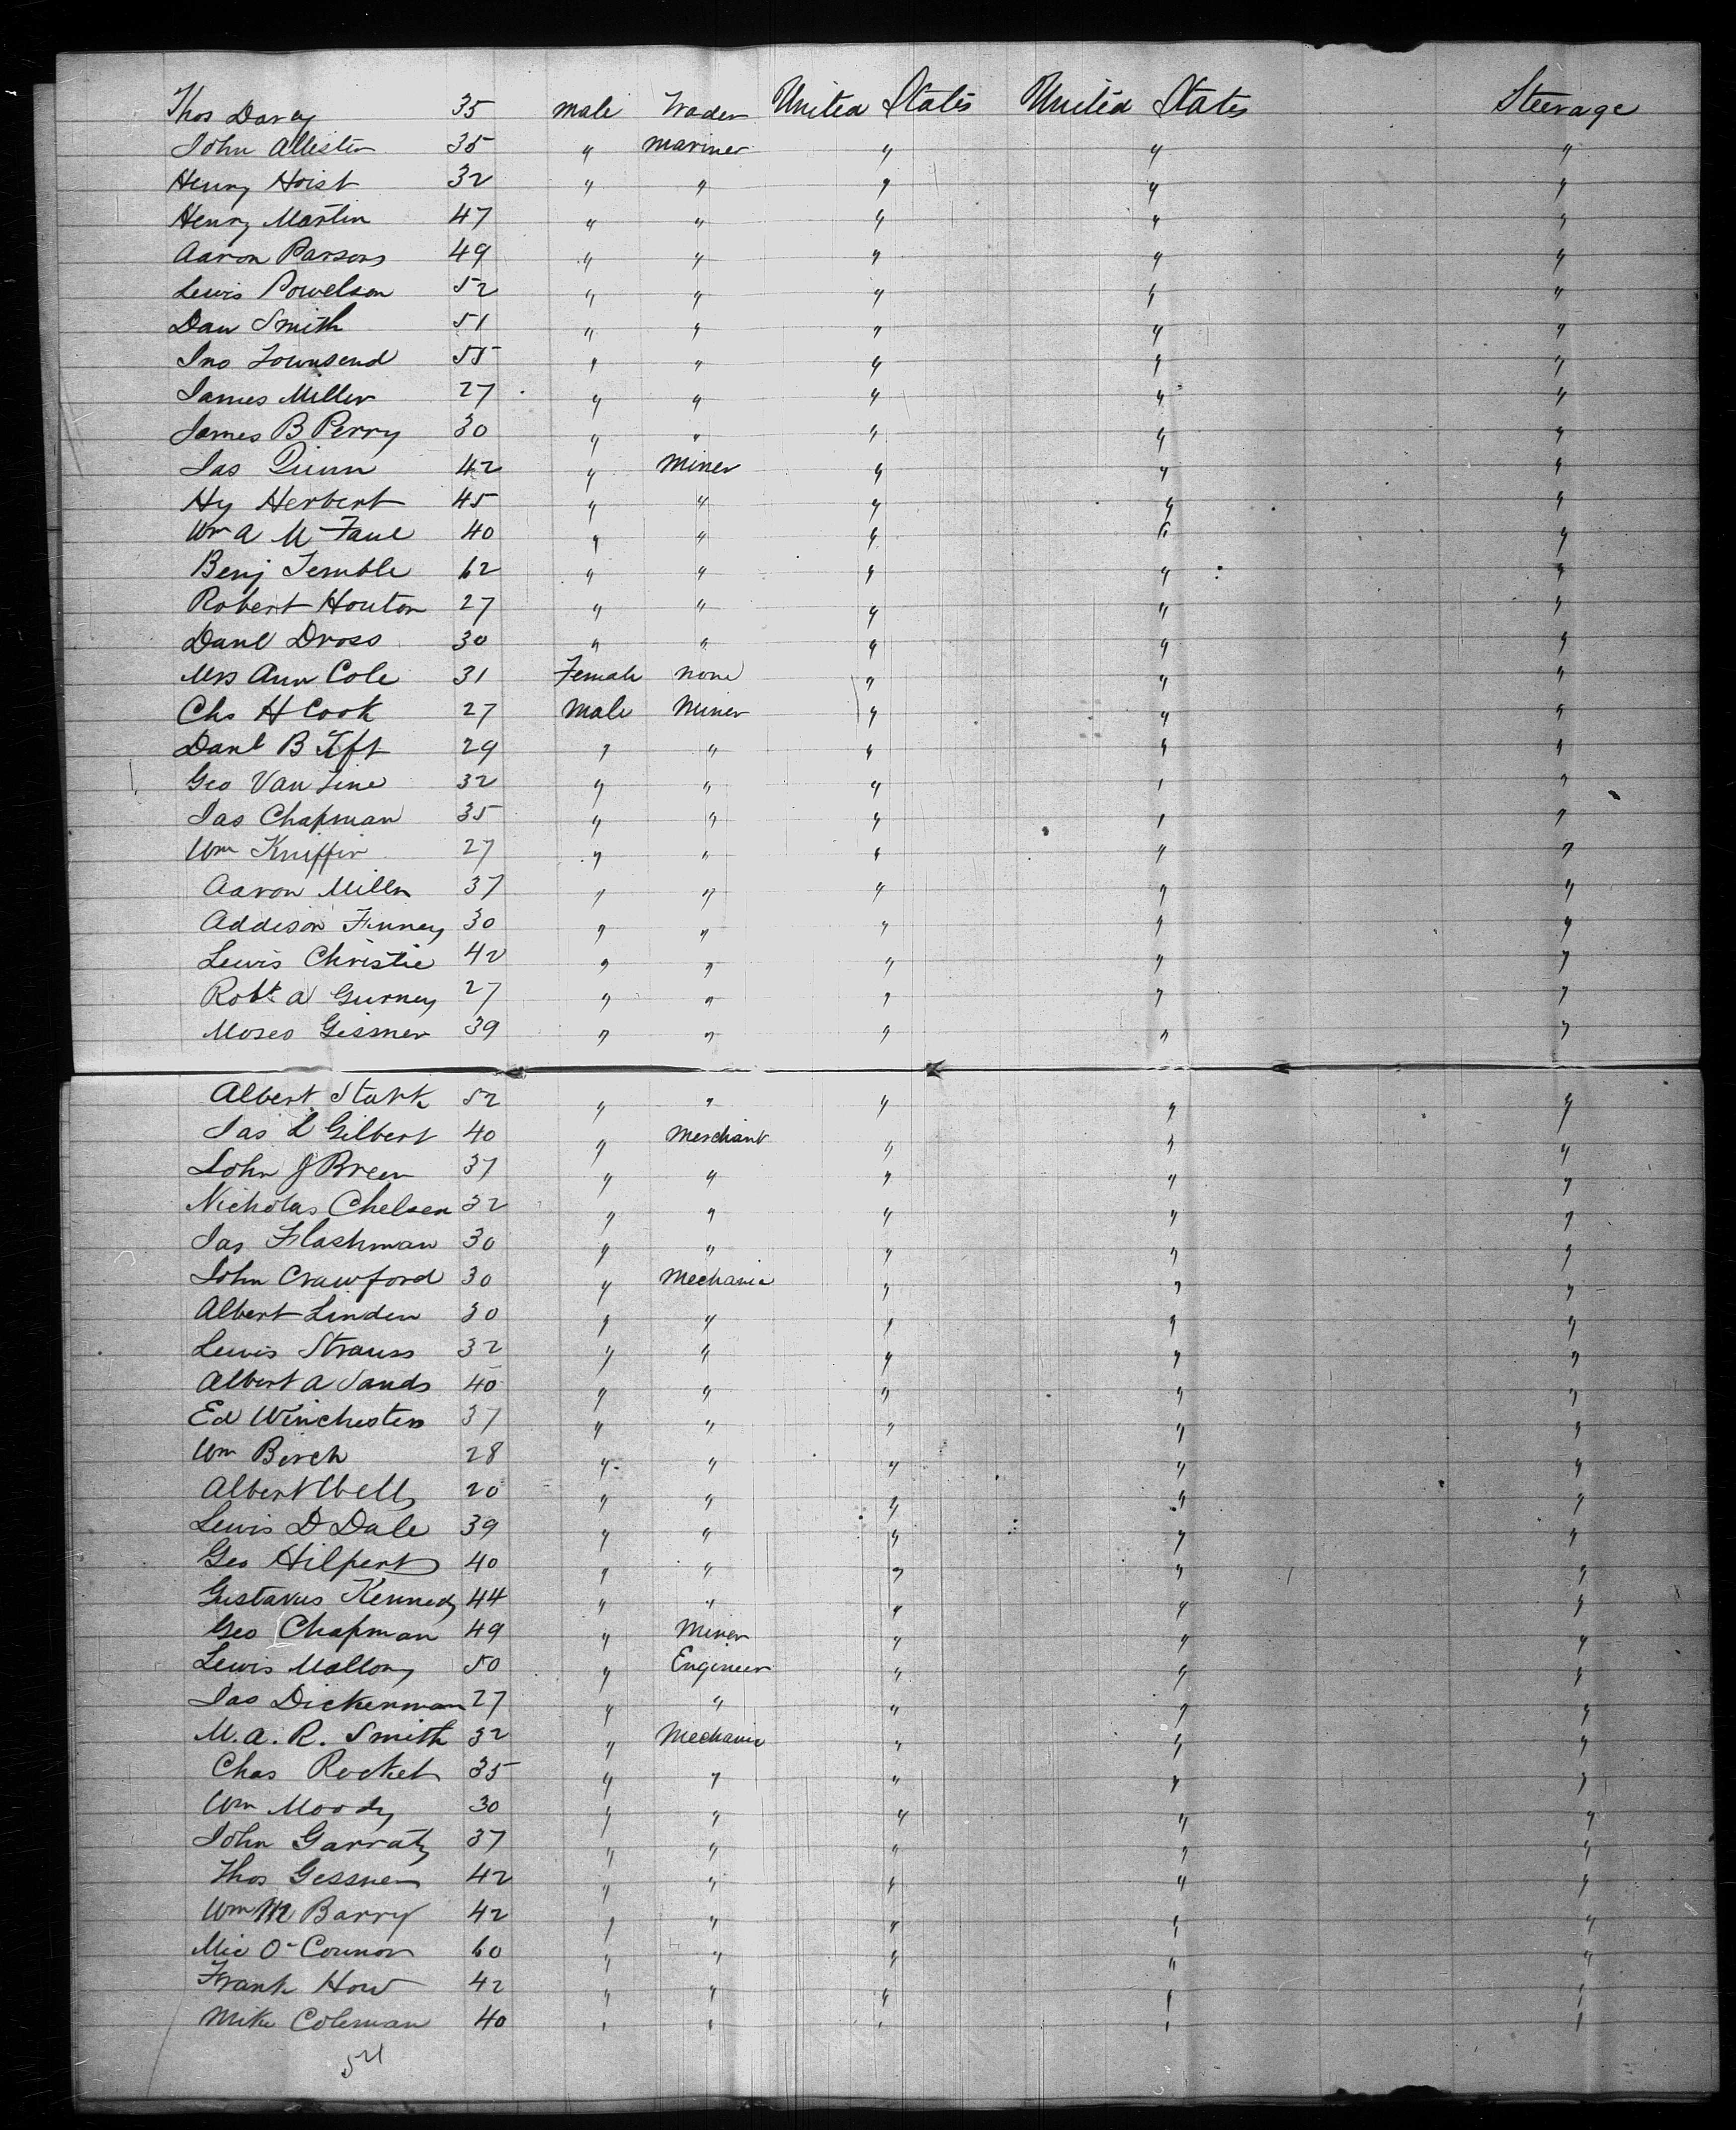 Thos Darcy 35 male Trader United States United States Steerage
John Allister 35 " mariner " " "
Henry Hoist 32 " " " " "
Henry Martin 47 " " " " "
Aaron Parsons 49 " " " " "
Lewis Powelson 52 " " " " "
Dan Smith 51 " " " " "
Jno Townsend 55 " " " " "
James Miller 27 " " " " "
James B Perry 30 " " " " "
Jas Quinn 42 " Miner " " "
Hy Herbert 45 " " " " "
Wm A Mc Faul 40 " " " " "
Benj Temble 62 " " " " "
Robert Houton 27 " " " " "
Danl Dross 30 " " " " "
Mrs Ann Cole 31 Female none " " "
Chs H Cook 27 Male Miner " " "
Danl B Tift 29 " " " " "
Geo Van Tine 32 " " " " "
Jas Chapman 35 " " " " "
Wm Kniffin 27 " " " " "
Aaron Miller 37 " " " " "
Addison Finney 30 " " " " "
Lewis Christie 42 " " " " "
Robt A Gurney 27 " " " " "
Moses Gismer 39 " " " " "
Albert Stark 52 " " " " "
Jas L Gilbert 40 " Merchant " " "
John J Breen 37 " " " " "
Nicholas Chelsen 32 " " " " "
Jas Flashman 30 " " " " "
John Crawford 30 " Mechanic " " "
Albert Linden 30 " " " " "
Lewis Strauss 32 " " " " "
Albert A Sands 40 " " " " "
Ed Winchester 37 " " " " "
Wm Birch 28 " " " " "
Albert Wells 20 " " " " "
Lewis D Dale 39 " " " " "
Geo Hilpert 40 " " " " "
Gustavus Kennedy 44 " " " " "
Geo Chapman 49 " Miner " " "
Lewis Mallory 50 " Engineer " " "
Jas Dickerman 27 " " " " "
M. A. R. Smith 32 " Mechanic " " "
Chas Rocket 35 " " " " "
Wm Moody 30 " " " " "
John Garraty 37 " " " " "
Thos Gessner 42 " " " " "
Wm M Barry 42 " " " " "
Mic O'Connor 60 " " " " "
Frank How 42 " " " " "
Mike Coleman 40 " " " " "
54